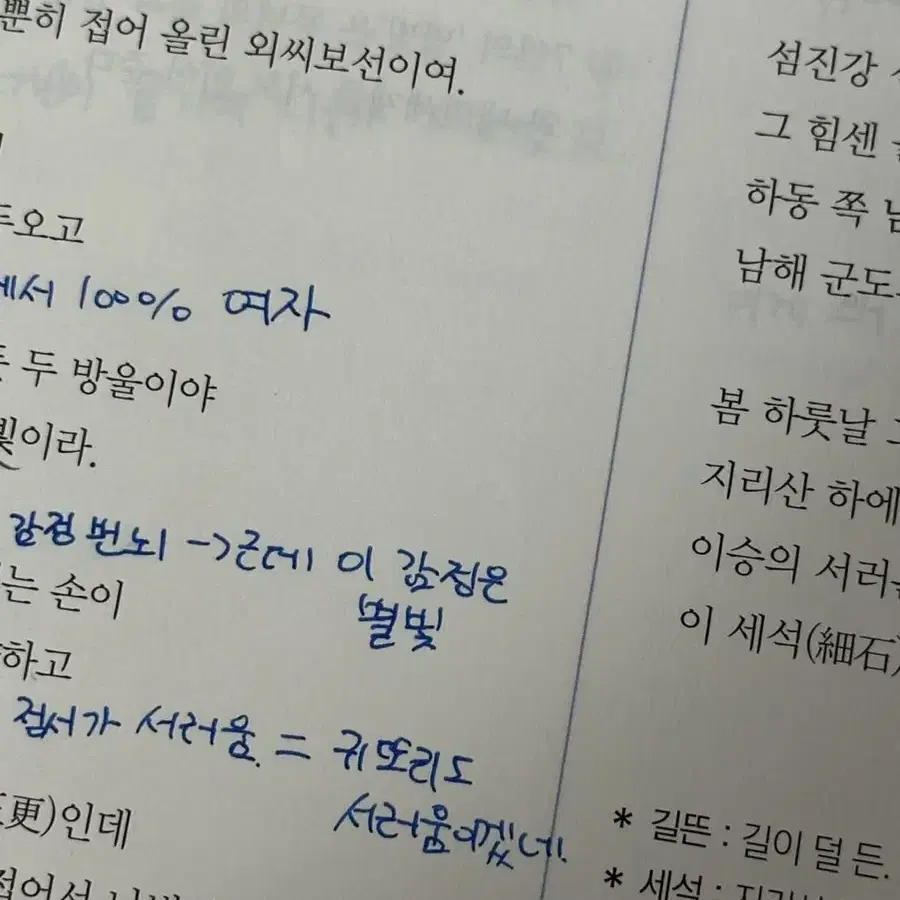 접어 올린 외씨보선이여.
오고
에서 100% 여자
두 방울이야
빛이라.
감정 번뇌 → 근데 이 감정은
별빛
는 손이
하고
정서가 서러움. = 귀또리도
서러움이겠네.
更)인데
접어서
섬진강
그 힘센
하동 쪽
남해 군도
봄 하룻날
지리산 하에
이승의 서러
이 세석(細石)
* 길뜬 : 길이 덜 든.
* 세석 :